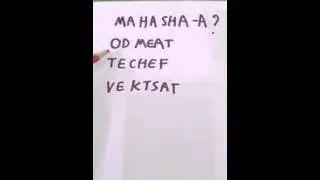 MA HA SHA-A?
OD MEAT
TECHEF
VE KTSAT